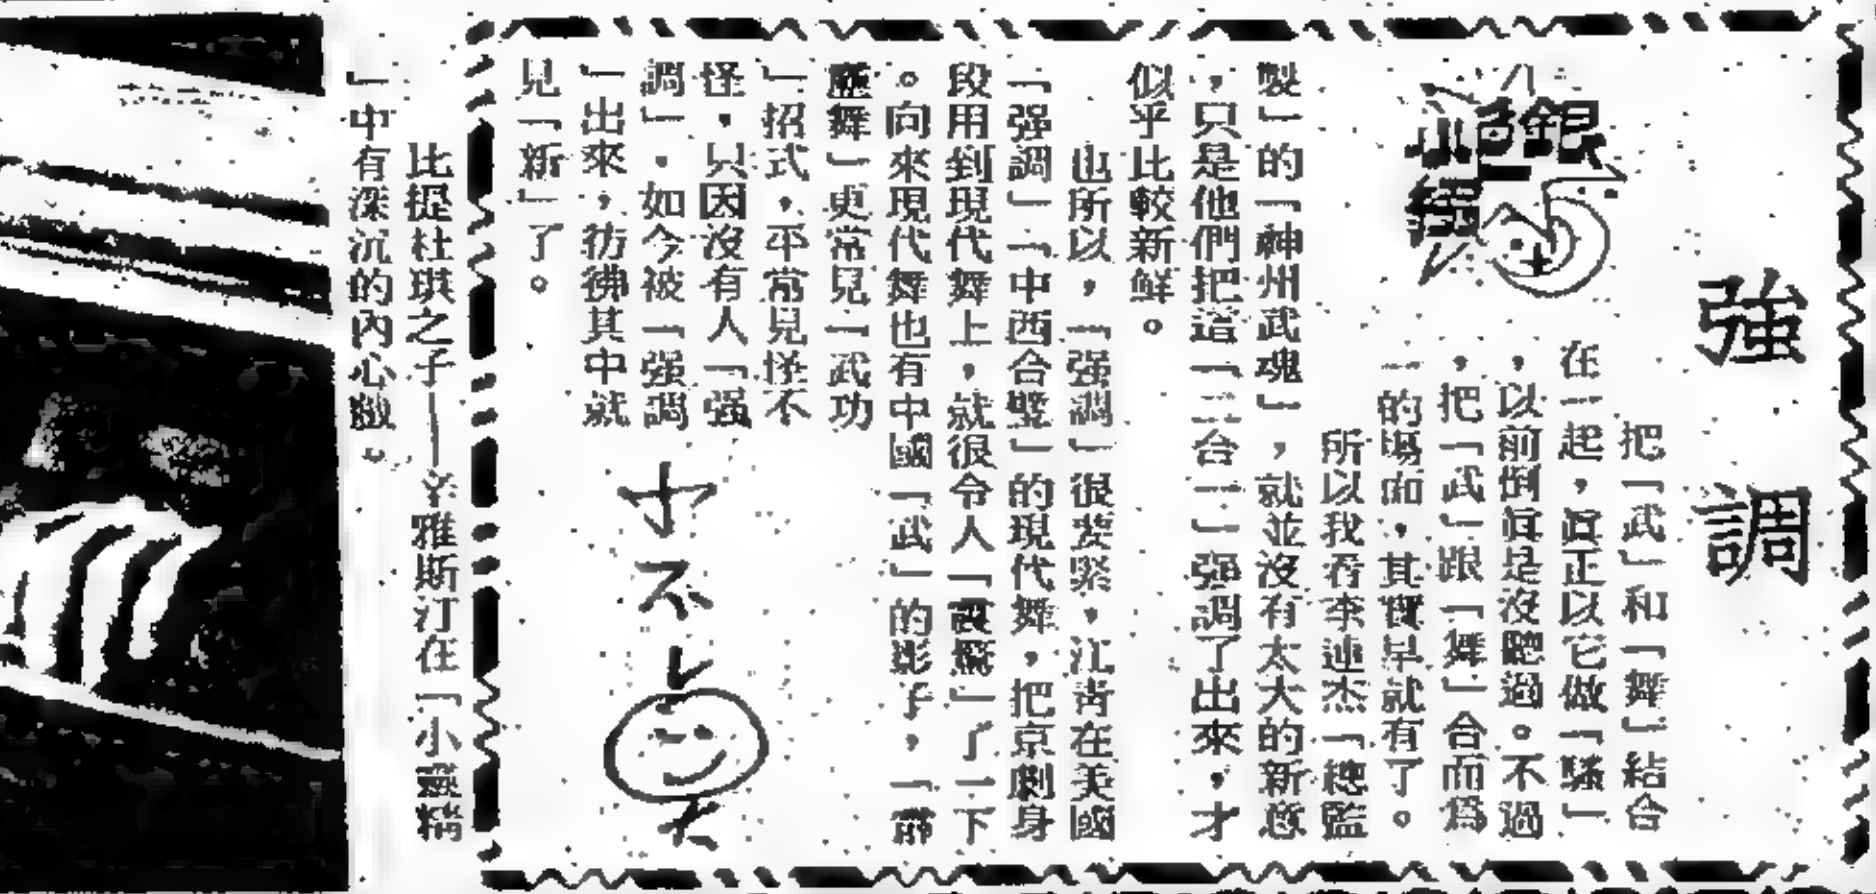 強調
銀色
把「武」和「舞」結合
在一起，眞正以它做「騷」
，以前倒眞是沒聽過。不過
，把「武」跟「舞」合而爲
一的場面，其實早就有了。
所以我看李連杰「總監
製」的「神州武魂」，就並沒有太大的新意
，只是他們把這「二合一」强調了出來，才
似乎比較新鮮。
也所以，「强調」很要緊，江靑在美國
「强調」「中西合璧」的現代舞，把京劇身
段用到現代舞上，就很令人「震驚」了一下
。向來現代舞也有中國「武」的影子，「霹
靂舞」更常見「武功
」招式，平常見怪不
怪，只因沒有人「强
調」，如今被「强調
」出來，彷彿其中就
見「新」了。
比提杜琪之子——辛雅斯汀在「小靈精
」中有深沉的內心戲。